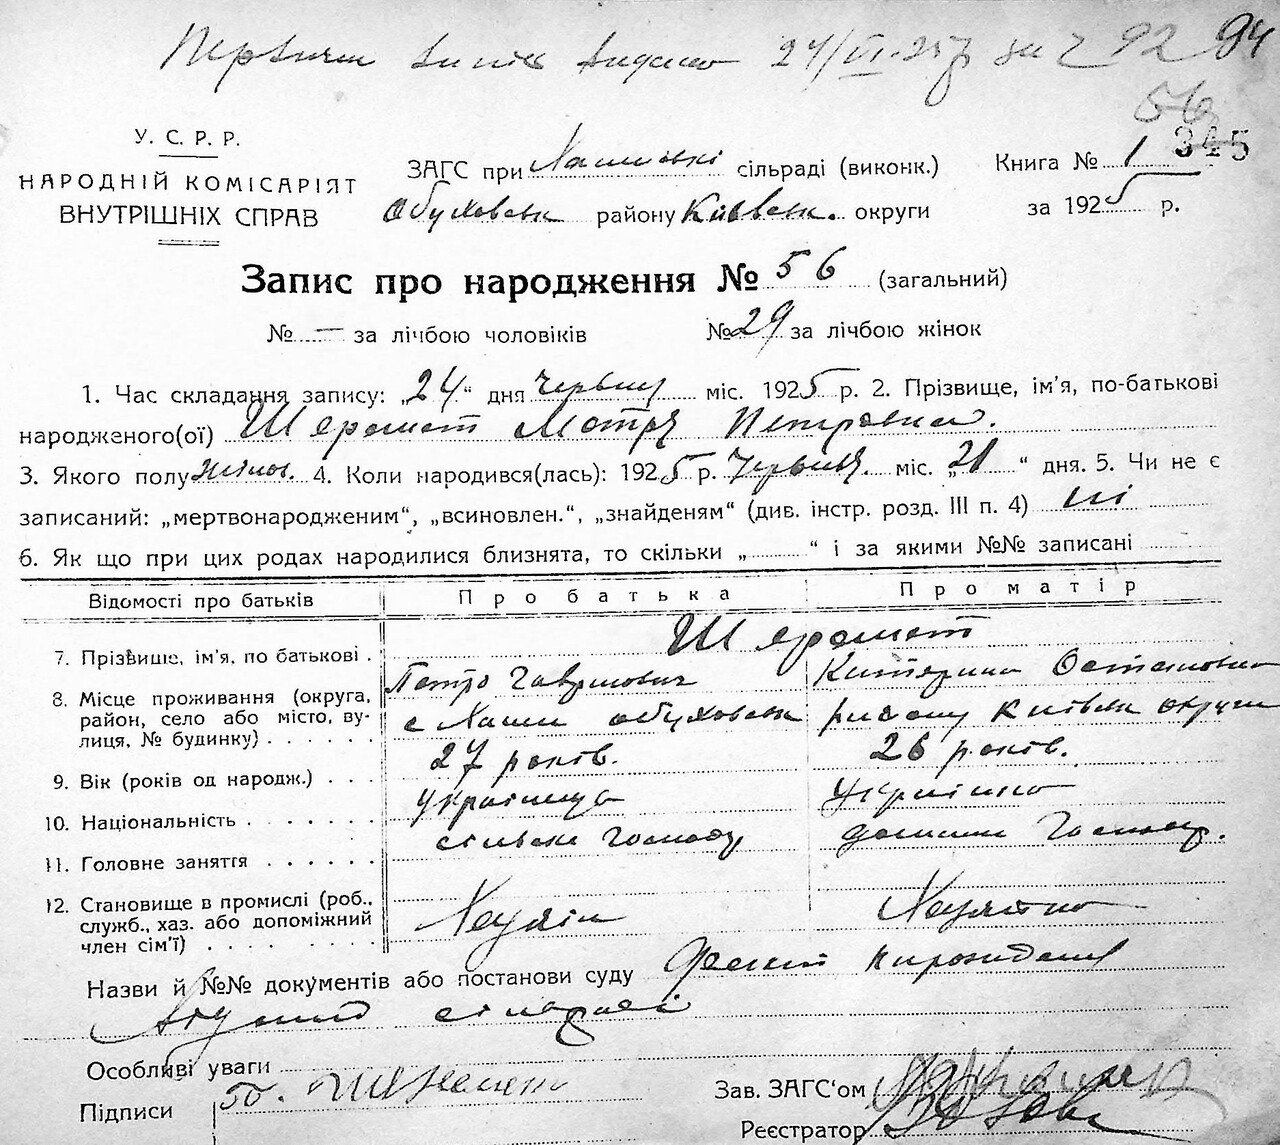 видано 24/VI-25р за ч 92 94
56
У. С. Р. Р.
НАРОДНІЙ КОМІСАРІЯТ
ВНУТРІШНІХ СПРАВ
ЗАГС при сільраді (виконк.)
Обуховськ району Київськ. округи
Книга № 1 345
за 1925 р.
Запис про народження № 56 (загальний)
№ — за лічбою чоловіків №29 за лічбою жінок
1. Час складання запису: „24“ дня Червня міс. 1925 р. 2. Прізвище, ім’я, по-батькові
народженого(ої) Шеремет Мотря Петровна.
3. Якого полу жіноч. 4. Коли народився(лась): 1925 р. Червня міс. „21“ дня. 5. Чи не є
записаний: „мертвонародженим“, „всиновлен.“, „знайденям“ (див. інстр. розд. III п. 4) ні
6. Як що при цих родах народилися близнята, то скільки „ “ і за якими №№ записані
Відомості про батьків Про батька Про матір
7. Прізвище, ім’я, по батькові . Шеремет
Петро Гаврилович Катерина Остаповна
8. Місце проживання (округа, район, село або місто, вулиця, № будинку) . . . . . .
с обуховськ району Київськ округи
9. Вік (років од народж.) . . . 27 років. 26 років.
10. Національність . . . . . . . українець Українка
11. Головне заняття . . . . . . сільське господар домашнє Господар.
12. Становище в промислі (роб., служб., хаз. або допоміжний член сім’ї) . . . . . . . Хазяїн Хазяйка
Назви й №№ документів або постанови суду
сільради
Особливі уваги
Підписи
Зав. ЗАГС‘ом
Реєстратор